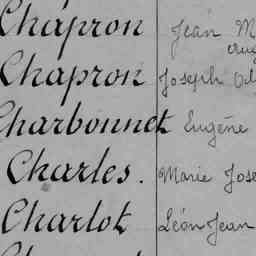 Chapron Jean M
Chapron Joseph
Charbonnet Eugène
Charles. Marie Jose
Charlot Léon Jean